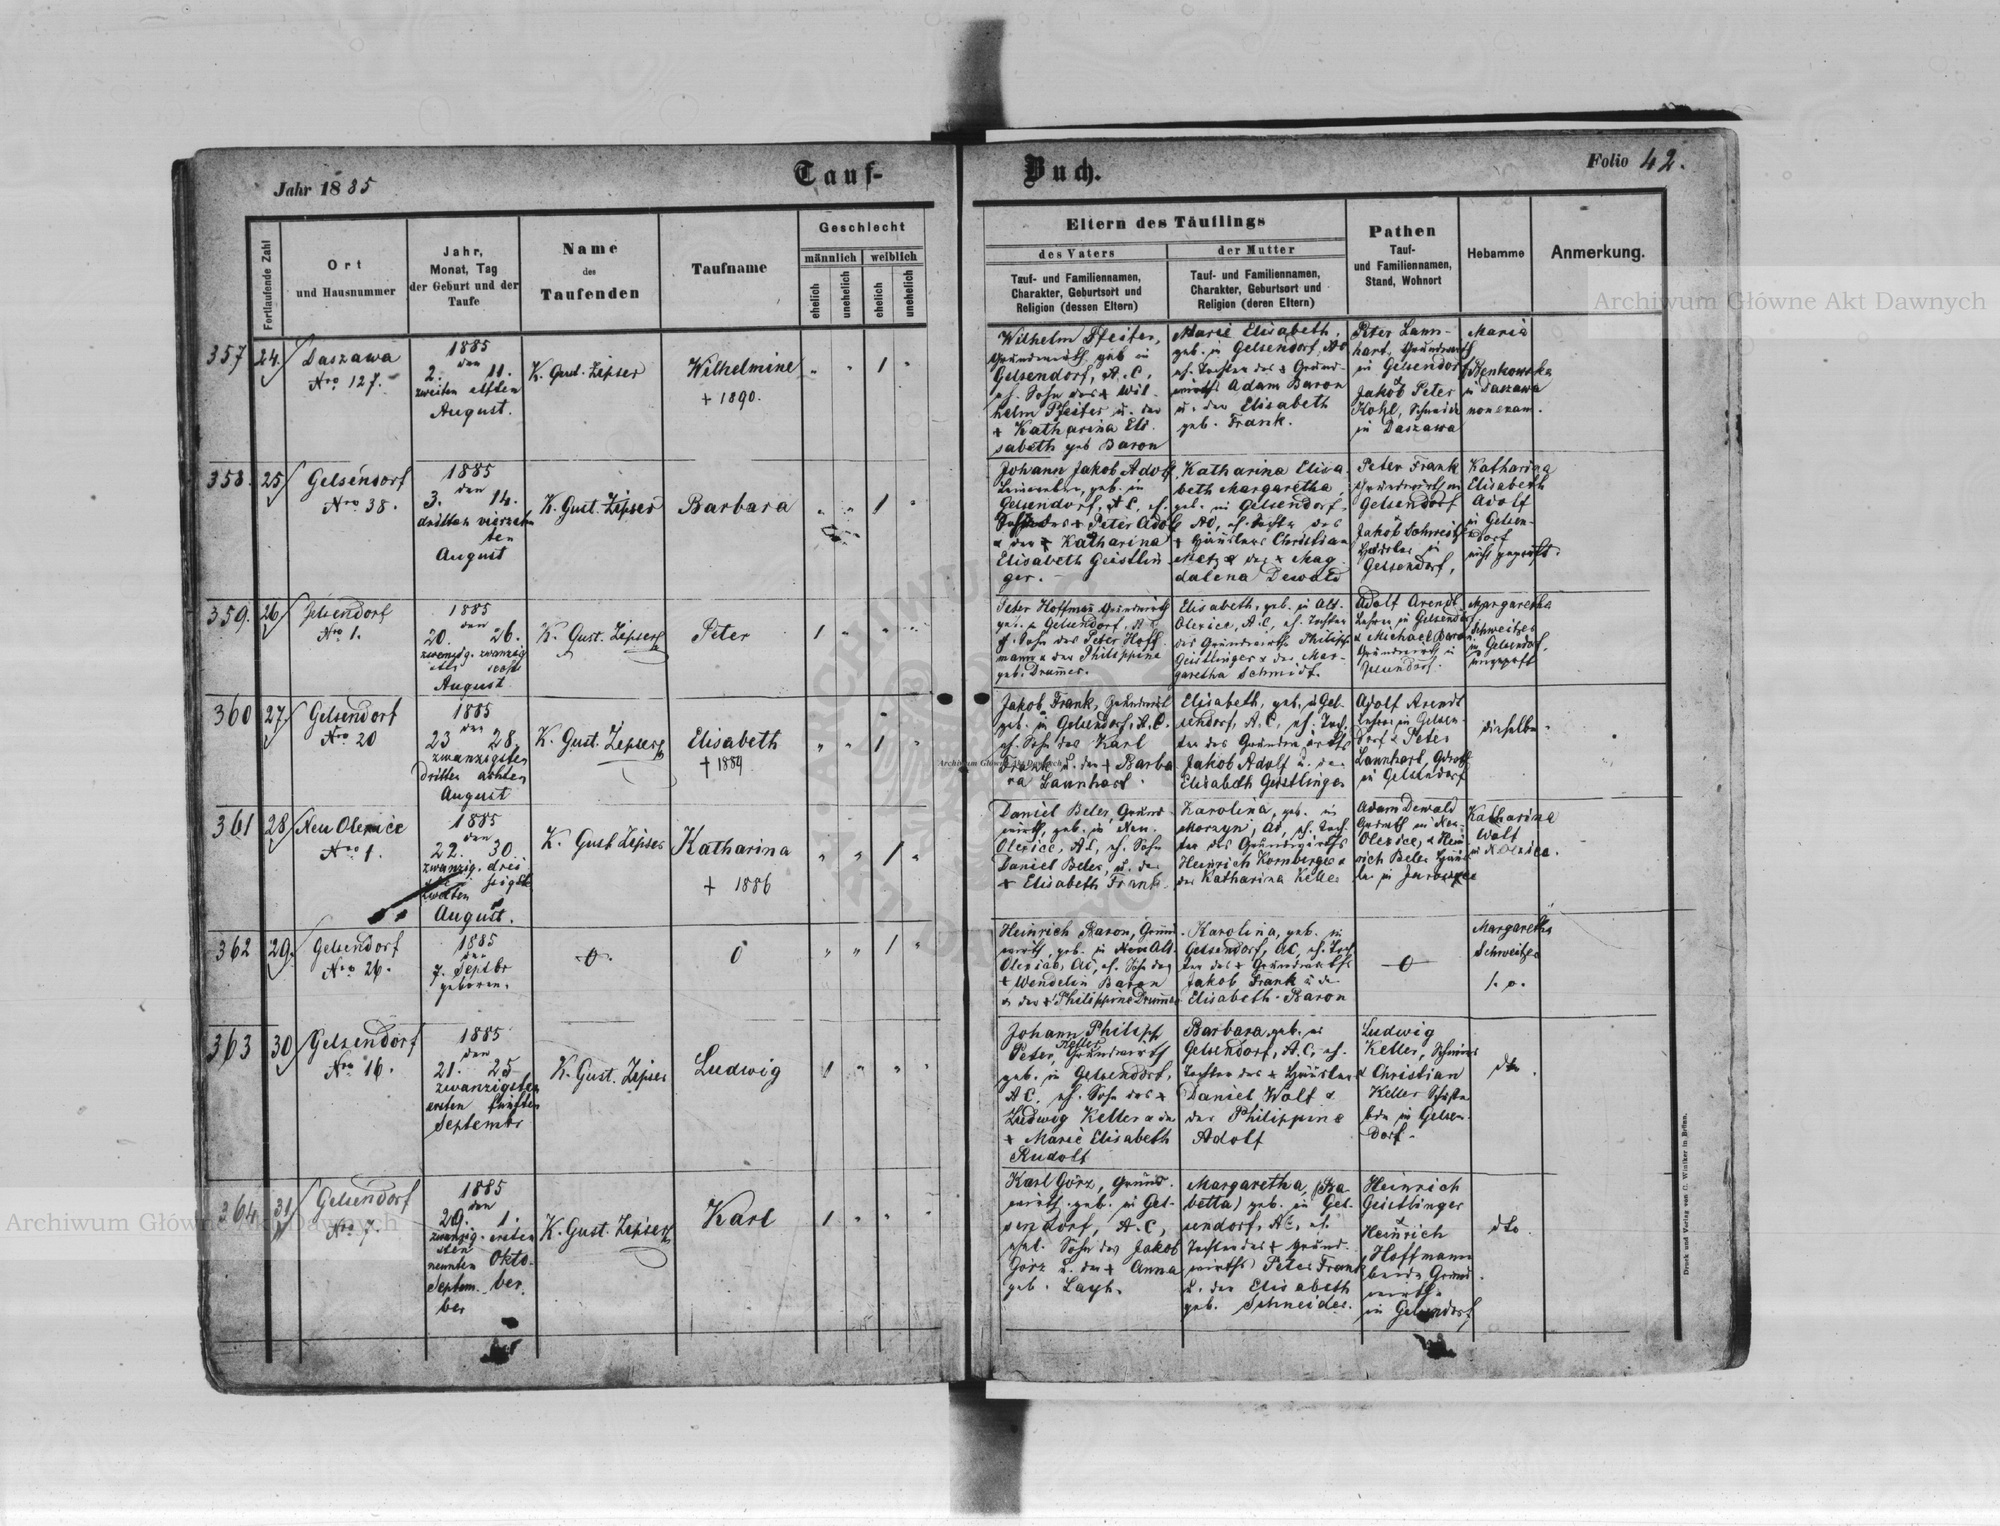 Jahr 1885
Tauf-
Buch.
Folio 42.
Fortlaufende Zahl
Ort
und Hausnummer
Jahr,
Monat, Tag
der Geburt und der
Taufe
Name
des
Taufenden
Taufname
Geschlecht
männlich
weiblich
ehelich
unehelich
ehelich
unehelich
Eltern des Täuflings
des Vaters
Tauf- und Familiennamen,
Charakter, Geburtsort und
Religion (dessen Eltern)
der Mutter
Tauf- und Familiennamen,
Charakter, Geburtsort und
Religion (deren Eltern)
Pathen
Tauf-
und Familiennamen,
Stand, Wohnort
Hebamme
Anmerkung.
357
24
Daszawa
Nro 127.
1885
den
2. 11.
zweiten elften
August.
K. Gust. Zipser
Wilhelmine
+ 1890.
1
Wilhelm Pfeifer,
Grundwirth, geb in
Gelsendorf, A. C.,
eh. Sohn des + Wil-
helm Pfeifer u. der
+ Katharina Eli-
sabeth geb Baron
Marie Elisabeth,
geb. in Gelsendorf, AC
eh. Tochter des + Grund-
wirths Adam Baron
u. der Elisabeth
geb. Frank.
Peter Laun-
hart, Grundwirth
in Gelsendorf
Jakob Peter
Kohl, Schneider
in Daszawa
Maria
in Daszawa
non exam.
358.
25
Gelsendorf
Nro 38.
1885
den
3. 14.
dritten vierzehn
ten
August
K. Gust. Zipser
Barbara
1
Johann Jakob Adolf
geb. in
Gelsendorf, A C, eh.
Sohn des + Peter Adolf
& der + Katharina
Elisabeth Geistlin
ger.
Katharina Elisa
beth Margaretha,
geb. in Gelsendorf,
AC, eh. Tochter des
+ Häuslers Christian
Metz & der + Mag
dalena Dewald
Peter Frank
Grundwirth in
Gelsendorf
Jakob Schweitzer
Häusler in
Gelsendorf,
Katharina
Elisabeth
Adolf
in Gelsen-
dorf
nicht geprüft.
359.
26
Gelsendorf
Nro 1.
1885
den
20. 26.
zwanzig. zwanzig
sten sechs
August
K. Gust. Zipser
Peter
1
Peter Hoffmann Grundwirth
geb. in Gelsendorf, A C
eh. Sohn des Peter Hoff
mann & der Philippine
geb. Drumer.
Elisabeth, geb. in Alt-
Olexice, A C, eh. Tochter
des Grundwirths Philipp
Geistlinger & der Mar-
garetha Schmidt.
Adolf Arendt
Lehrer in Gelsendorf
& Michael Baron
Grundwirth in
Gelsendorf.
Margaretha
Schweitzer
in Gelsendorf,
ungeprüft
360
27
Gelsendorf
Nro 20
1885
den
23 28.
zwanzigsten
dritten achten
August
K. Gust. Zipser
Elisabeth
+ 1889
1
Jakob Frank, Grundwirth
geb. in Gelsendorf, A. C.
eh. Sohn des Karl
Frank u. der + Barba
ra Launhart.
Elisabeth, geb. in Gel-
sendorf, A. C, eh. Toch-
ter des Grundwirths
Jakob Adolf u. der
Elisabeth Geistlinger
Adolf Arendt
Lehrer in Gelsen-
dorf & Peter
Launhart, Grdwrth
in Gelsendorf
dieselbe.
361
28
Neu Olexice
Nro 1.
1885
den
22. 30.
zwanzig. drei
sten ssigst
zweiten
August.
K. Gust Zipser
Katharina
+ 1886
1
Daniel Beler, Grund
wirth, geb. in Neu-
Olexice, A C, eh. Sohn
Daniel Beler, u. der
+ Elisabeth Frank.
Karolina, geb. in
Morzyn, AC, eh. Toch-
ter des Grundwirths
Heinrich Kornberger &
der Katharina Keller
Adam Dewald
Grdwrth in Neu-
Olexice, & Hein
rich Beler
Katharina
Wolf
in N Olexice.
362
29.
Gelsendorf
Nro 26.
1885
den
7. Septbr
geboren.
0
0
1
Heinrich Baron, Grund
wirth, geb. in Neu Alt-
Olexice, AC, eh. Sohn des
+ Wendelin Baron
& der + Philippine Drumer
Karolina, geb. in
Gelsendorf, AC, eh. Toch
ter des + Grundwirths
Jakob Frank u. der
Elisabeth Baron
0
Margaretha
Schweitzer
s. o.
363
30
Gelsendorf
Nro 16.
1885
den
21. 25
zwanzigsten
ersten fünften
Septembr
K. Gust. Zipser
Ludwig
1
Johann Philipp
Keller
Peter, Grundwirth
geb. in Gelsendorf,
A C, eh. Sohn des +
Ludwig Keller & der
+ Marie Elisabeth
Rudolf
Barbara, geb. in
Gelsendorf, A. C, eh.
Tochter des + Häuslers
Daniel Wolf &
der Philippine
Adolf
Ludwig
Keller, Schmied
& Christian
Keller Schuster
beide in Gelsen-
dorf.
dto.
364
31
Gelsendorf
Nro 7.
1885
den
29. 1.
zwanzig. ersten
sten
neunten Okto-
Septem- ber.
ber
K. Gust. Zipser
Karl
1
Karl Görz, Grund-
wirth, geb. in Gel-
sendorf, A. C,
ehel. Sohn des Jakob
Görz u. der + Anna
geb. Layh.
Margaretha, (Ba-
betta) geb. in Gel-
sendorf, AC, eh.
Tochter des + Grund
wirths Peter Frank
u. der Elisabeth
geb. Schneider.
Heinrich
Geistlinger
&
Heinrich
Hoffmann
beide Grund
wirth.
in Gelsendorf
dto.
Druck und Verlag von C. Winiker in Brünn.
Archiwum Główne Akt Dawnych
Archiwum Główne Akt Dawnych
Archiwum Główne Akt Dawnych